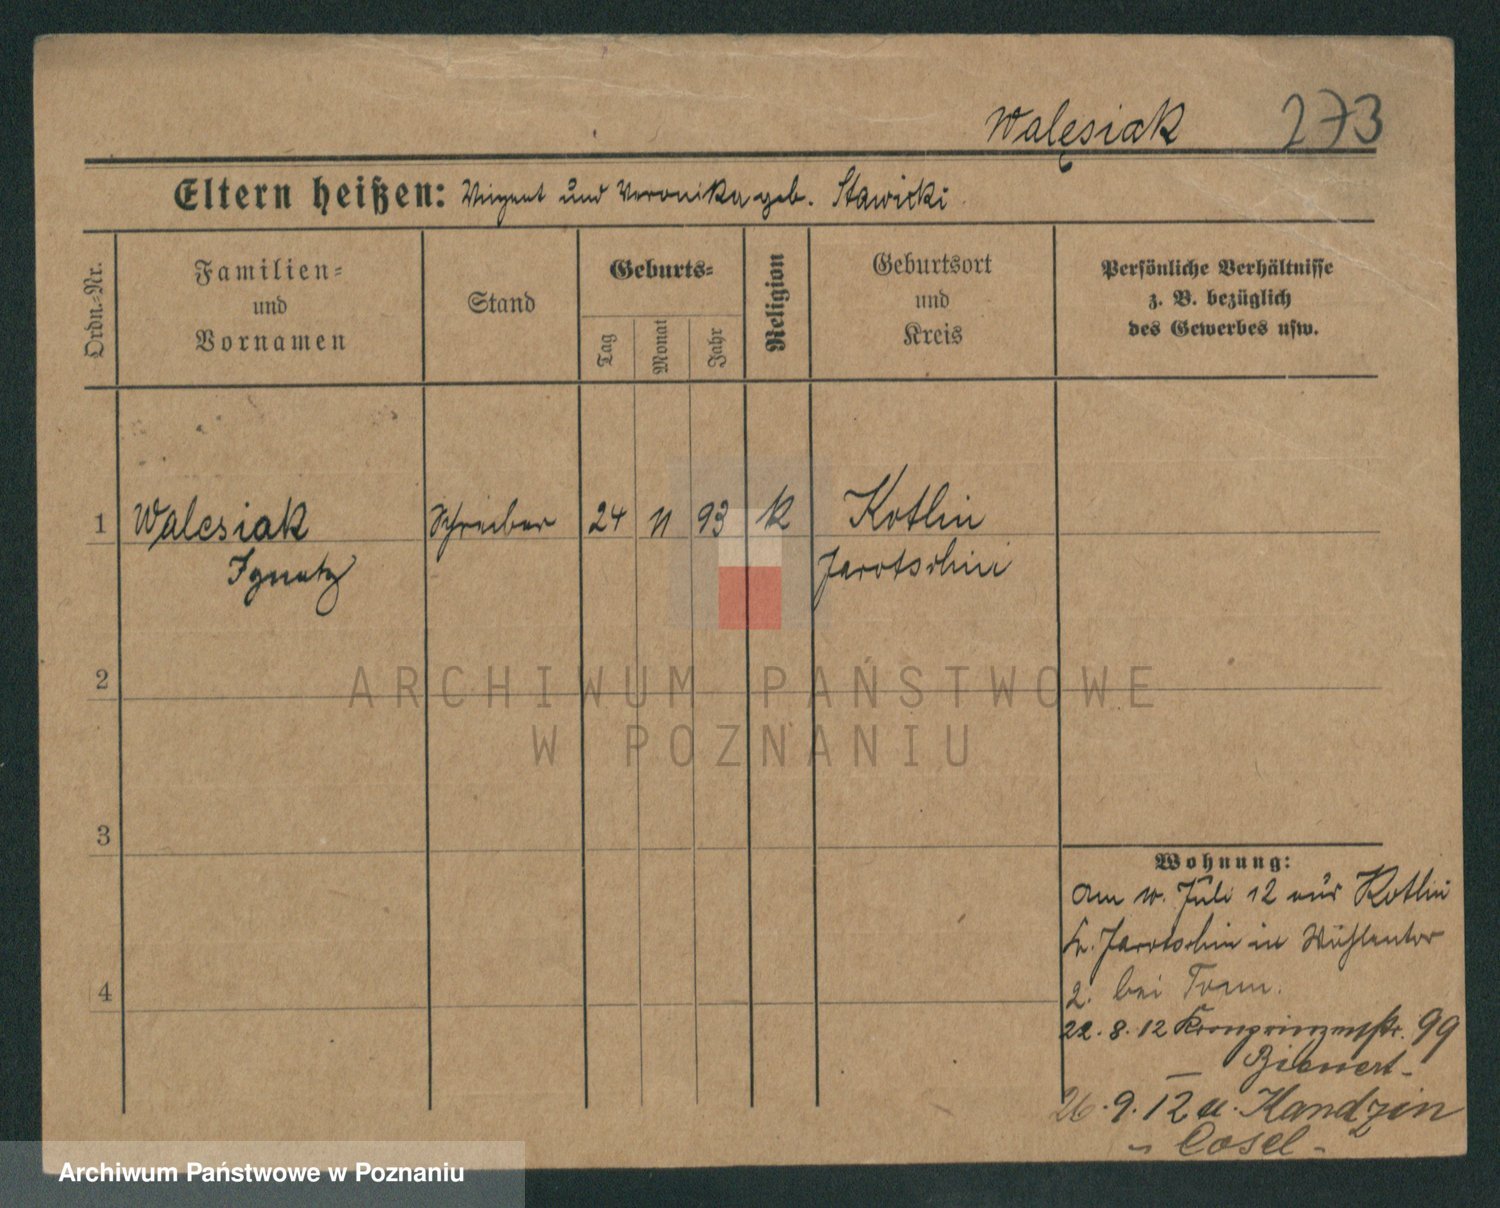 Walęsiak 273
Eltern heißen: Vinzent und Veronika geb. Stawicki
Ordn.-Nr.
Familien-
und
Vornamen
Stand
Geburts-
Tag
Monat
Jahr
Religion
Geburtsort
und
Kreis
Persönliche Verhältnisse
z. B. bezüglich
des Gewerbes usw.
1 Walesiak Schreiber 24 11 93 k Kotlin
Ignatz Jarotschin
2
3
4
Wohnung:
Am 10. Juli 12 aus Kotlin
Kr. Jarotschin in
2. bei
22. 8. 12 Kronprinzenstr. 99
Bienert
26. 9. 12 n. Kandzin
Cosel
ARCHIWUM PAŃSTWOWE
W POZNANIU
Archiwum Państwowe w Poznaniu